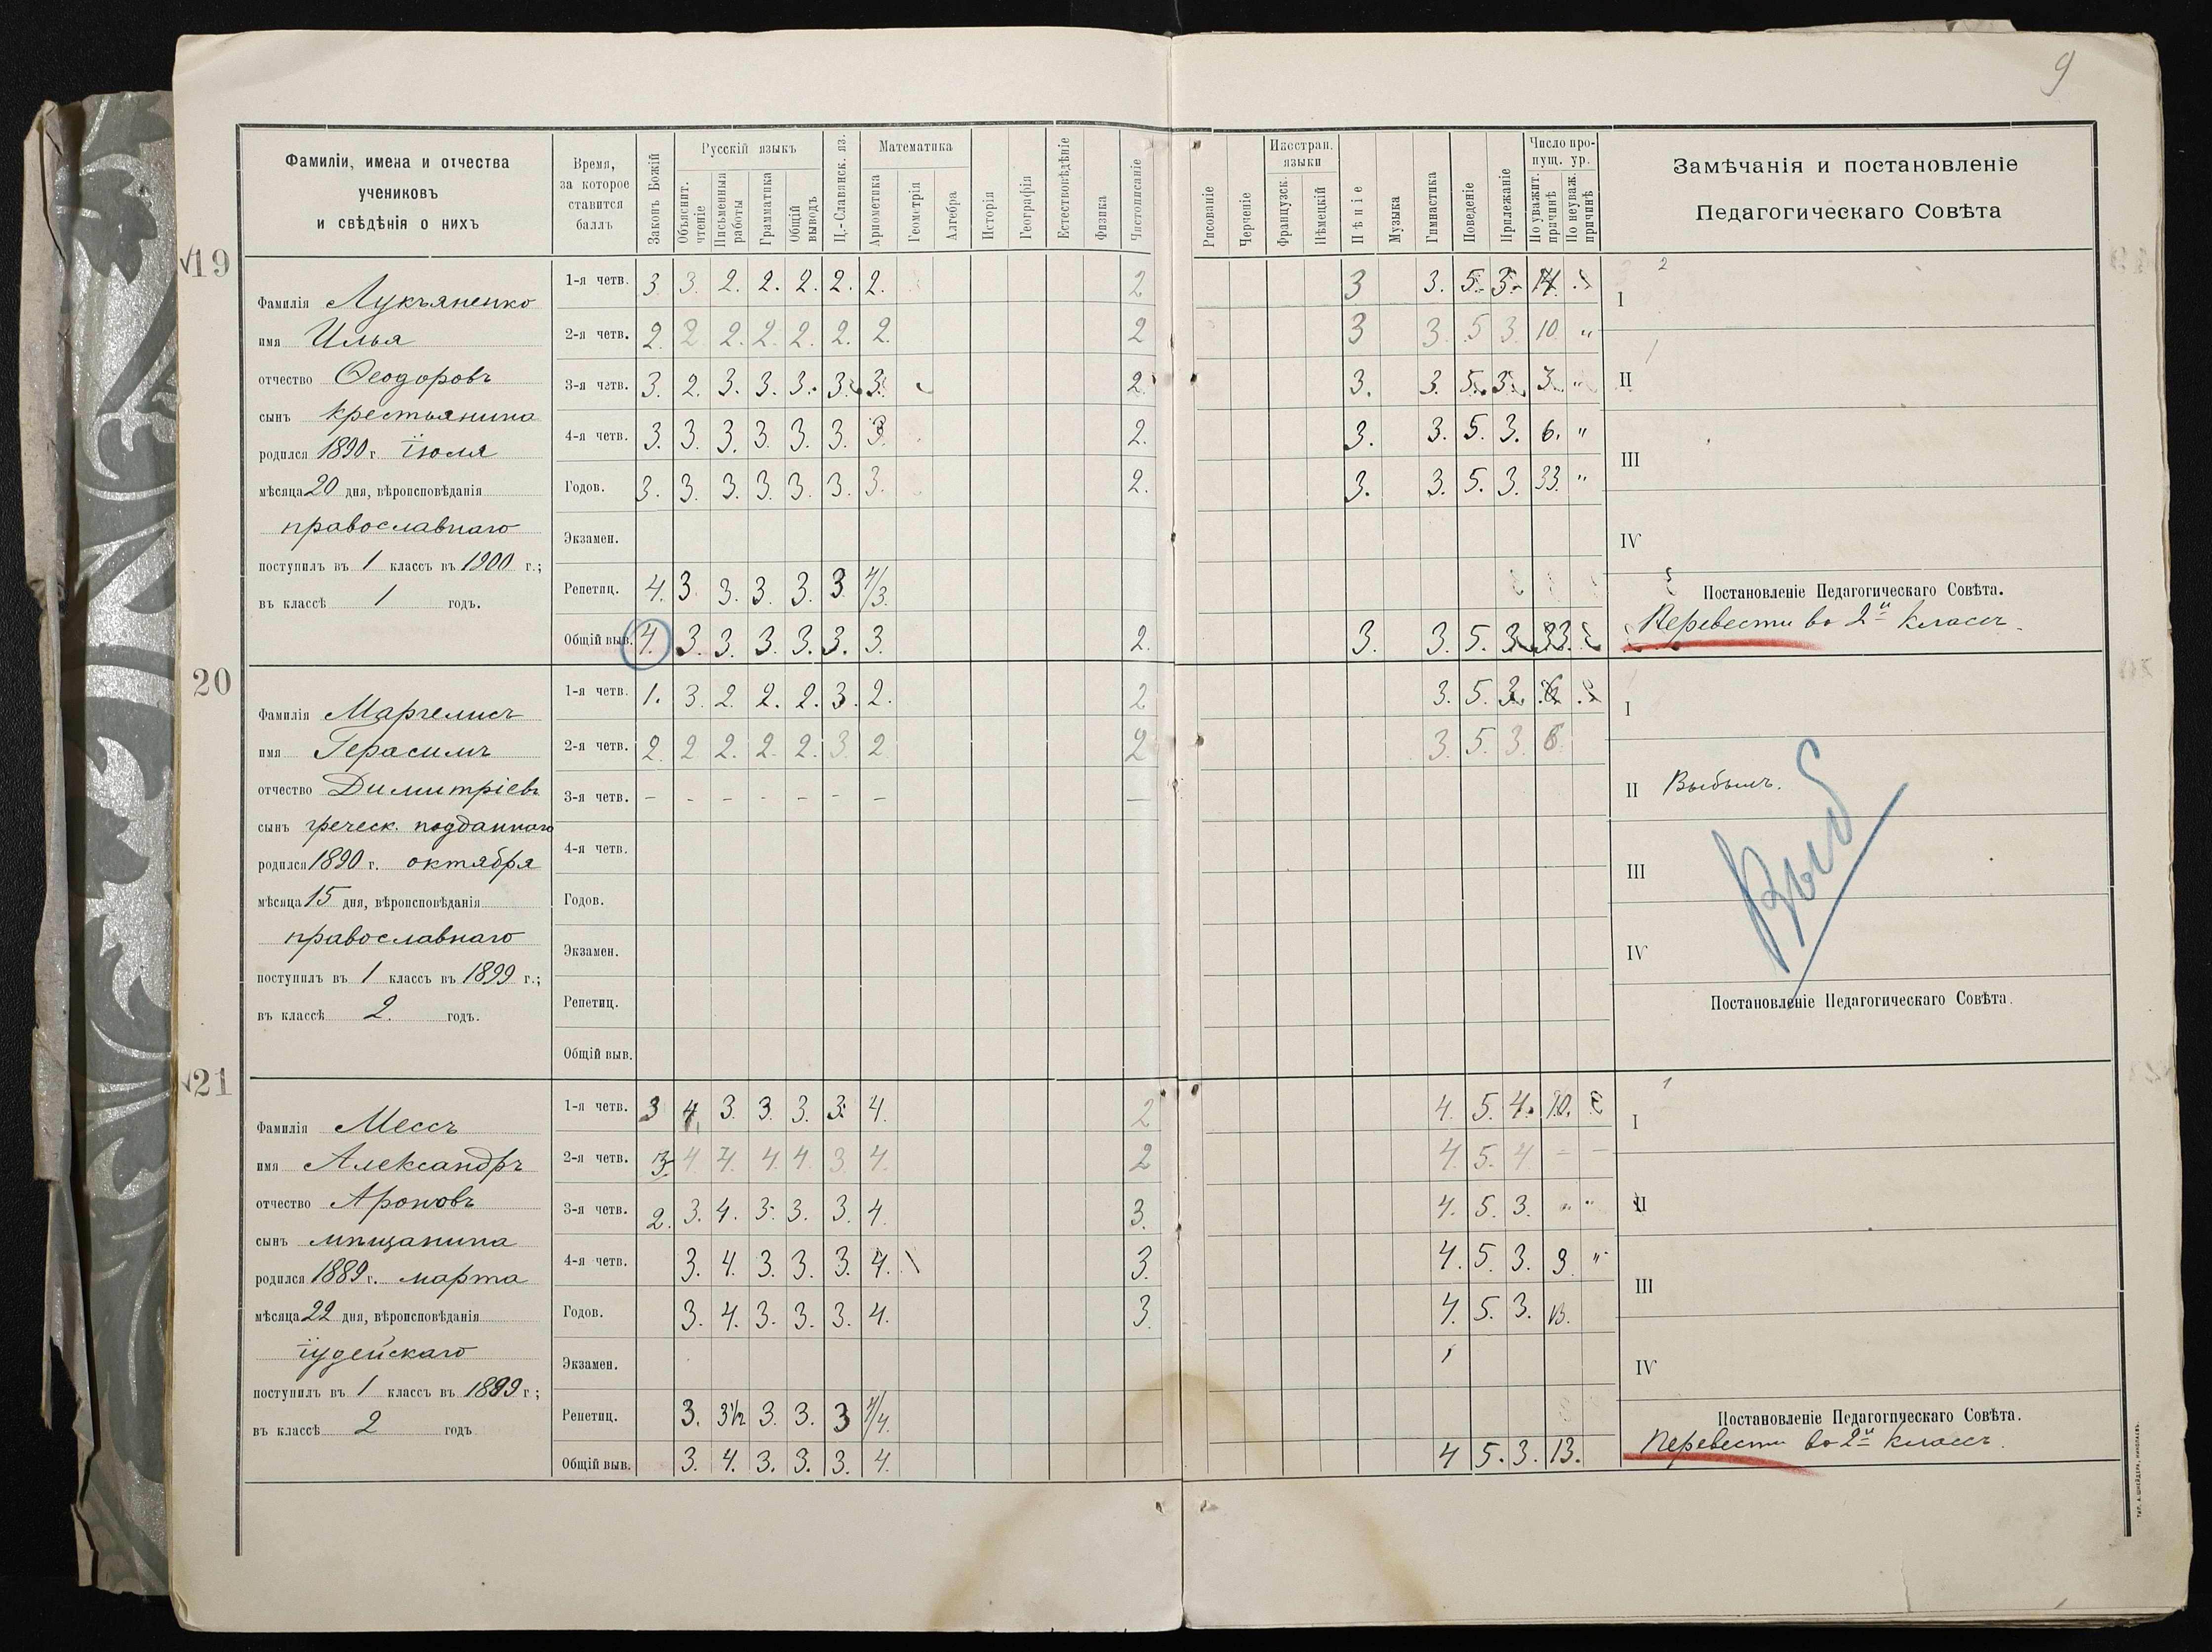 9
Фамиліи, имена и отчества
учениковъ
и свѣдѣнія о нихъ
Время,
за которое
ставится
баллъ
Законъ Божій
Русскій языкъ
Объяснит. чтеніе
Письменныя работы
Грамматика
Общій выводъ
Ц.-Славянск. яз.
Математика
Ариѳметика
Геометрія
Алгебра
Исторія
Географія
Естествовѣдѣніе
Физика
Чистописаніе
Рисованіе
Черченіе
Иностран. языки
Французск.
Нѣмецкій
Пѣніе
Музыка
Гимнастика
Поведеніе
Прилежаніе
Число пропущ. ур.
По уважит. причинѣ
По неуваж. причинѣ
Замѣчанія и постановленіе
Педагогическаго Совѣта
19
Фамилія Лукъяненко
имя Илья
отчество Ѳеодоровъ
сынъ крестьянина
родился 1890 г. іюля
мѣсяца 20 дня, вѣроисповѣданія
православнаго
поступилъ въ 1 классъ въ 1900 г.;
въ классѣ 1 годъ.
1-я четв. 3. 3. 2. 2. 2. 2. 2. 2 3 3. 5. 3. 14.
2-я четв. 2. 2 2. 2. 2. 2. 2. 2 3 3. 5 3. 10 „
3-я четв. 3. 2. 3. 3. 3. 3. 3. 2. 3. 3. 5. 3. 3. „
4-я четв. 3. 3. 3. 3. 3. 3. 3. 2. 3. 3. 5. 3. 6. „
Годов. 3. 3. 3. 3. 3. 3. 3. 2. 3. 3. 5. 3. 33. „
Экзамен.
Репетиц. 4. 3. 3. 3. 3. 3 4/3.
Общій выв. 4. 3. 3. 3. 3. 3. 3. 2. 3. 3. 5. 3. 33.
I
II
III
IV
Постановленіе Педагогическаго Совѣта.
Перевести во 2й классъ.
20
Фамилія Маргелисъ
имя Герасимъ
отчество Димитріевъ
сынъ греческ. подданнаго
родился 1890 г. октября
мѣсяца 15 дня, вѣроисповѣданія
православнаго
поступилъ въ 1 классъ въ 1899 г.;
въ классѣ 2. годъ.
1-я четв. 1. 3. 2. 2. 2. 3. 2. 2 3. 5. 3. 6
2-я четв. 2. 2 2. 2. 2. 3 2 2 3. 5. 3. 6.
3-я четв. – – – – – – – —
4-я четв.
Годов.
Экзамен.
Репетиц.
Общій выв.
I
II Выбылъ.
Выб
III
IV
Постановленіе Педагогическаго Совѣта.
21
Фамилія Мессъ
имя Александръ
отчество Ароновъ
сынъ мѣщанина
родился 1889 г. марта
мѣсяца 22 дня, вѣроисповѣданія
іудейскаго
поступилъ въ 1 классъ въ 1899 г;
въ классѣ 2 годъ
1-я четв. 3 4. 3. 3. 3. 3. 4. 2 4. 5. 4. 10.
2-я четв. 3. 4 4. 4. 4. 3 4. 2 4. 5. 4 – –
3-я четв. 2. 3. 4. 3. 3. 3. 4. 3. 4. 5. 3. „ „
4-я четв. 3. 4. 3. 3. 3. 4. 3. 4. 5. 3. 3 „
Годов. 3. 4. 3. 3. 3. 4. 3. 4. 5. 3. 13.
Экзамен.
Репетиц. 3. 3½ 3. 3. 3 4/4.
Общій выв. 3. 4. 3. 3. 3. 4. 4 5. 3. 13.
I
II
III
IV
Постановленіе Педагогическаго Совѣта.
Перевести во 2й классъ.
ТИП. А. ШНЕЙДЕРА, НИКОЛАЕВЪ.